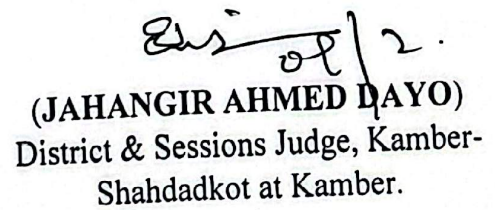 (JAHANGIR AHMED DAYO)
District & Sessions Judge, Kamber-
Shahdadkot at Kamber.